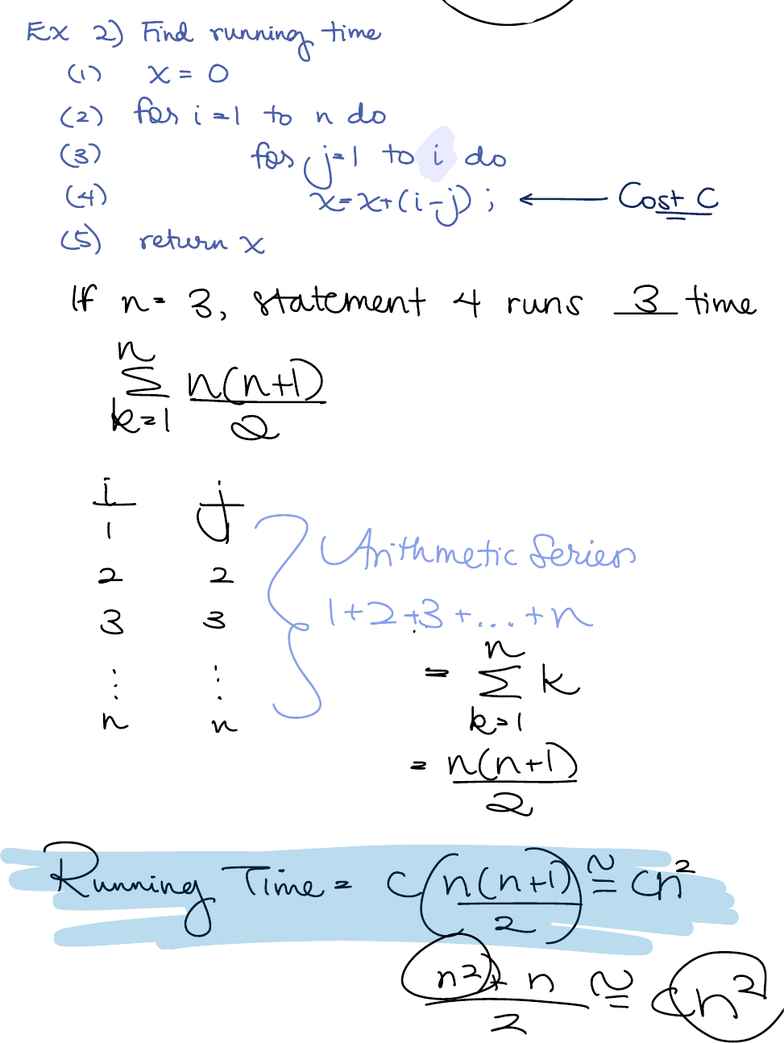 Ex 2) Find running time
(1) x = 0
(2) for i = 1 to n do
(3) for j=1 to i do
(4) x=x+(i-j); ← Cost C
(5) return x
If n = 3, statement 4 runs 3 time
n
Σ n(n+1)
k=1 2
i j
1
2 2
3 3
⋮ ⋮
n n
Arithmetic Series
1+2+3+...+n
n
= Σ k
k=1
= n(n+1)
2
Running Time = C(n(n+1)/2) ≅ cn²
n²+n/2 ≅ cn²